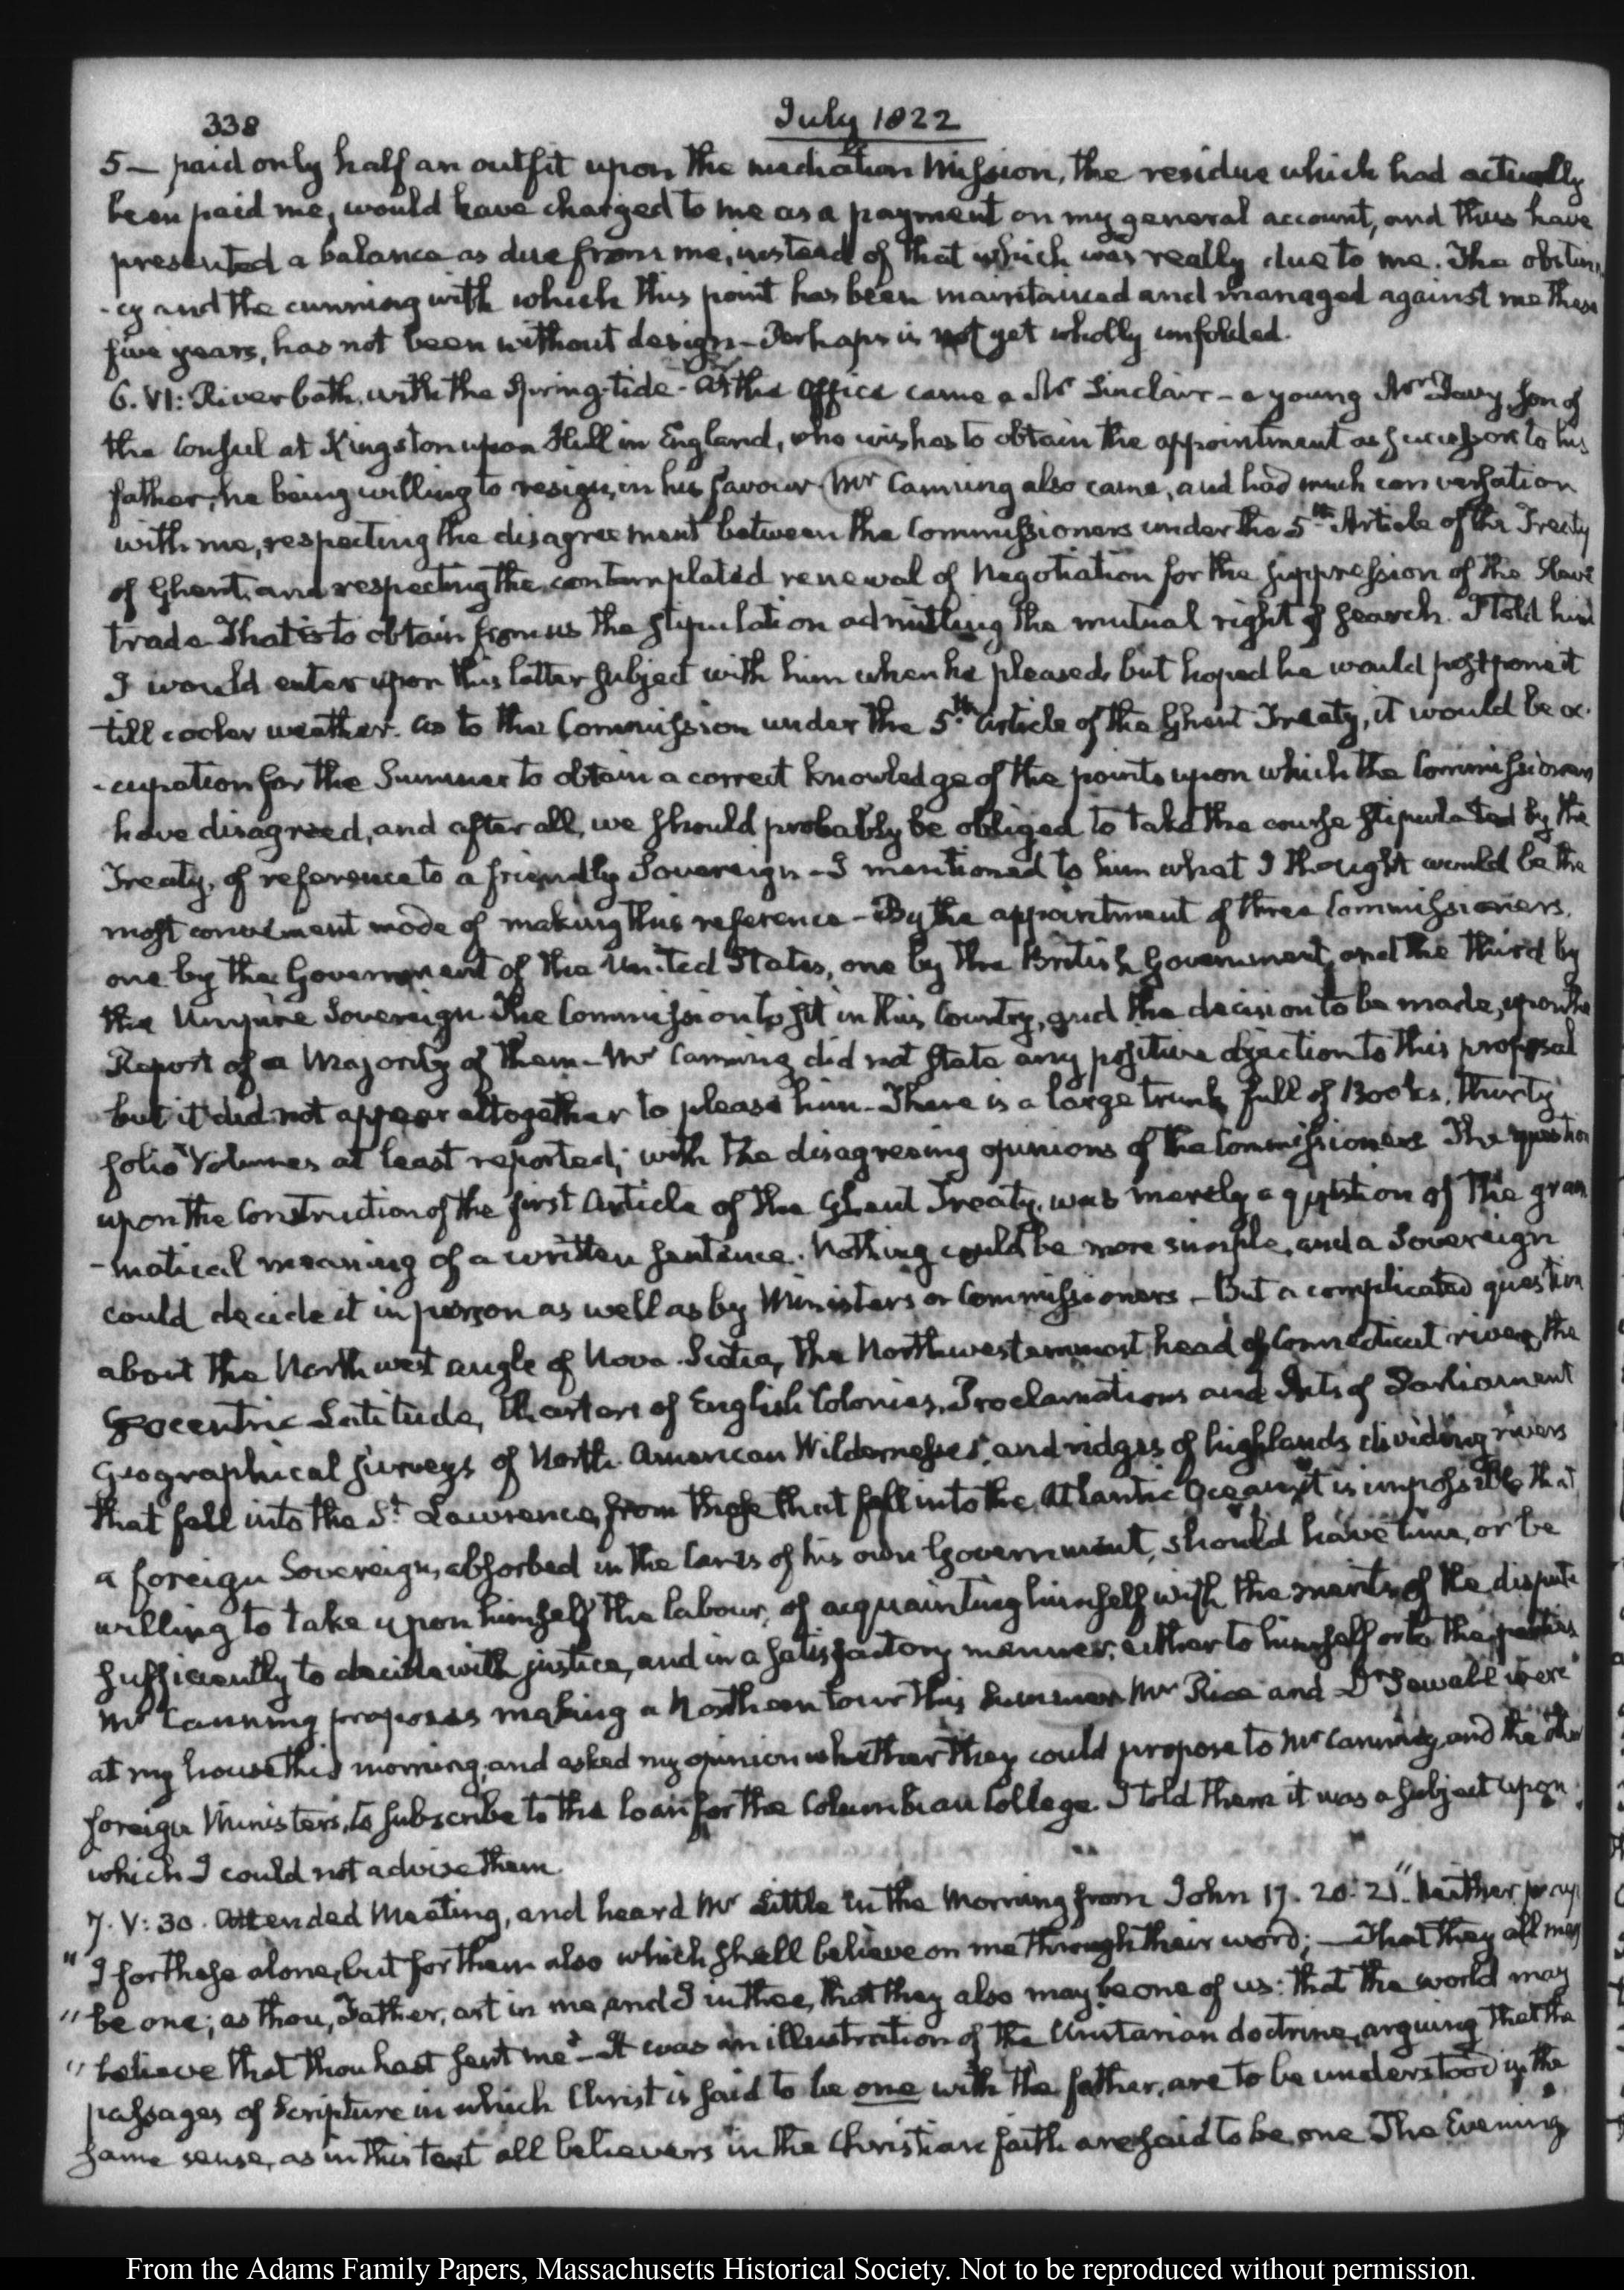 338
July 1822
5 — paid only half an outfit upon the mediation Mission, the residue which had actually
been paid me, would have charged to me as a payment on my general account, and thus have
presented a balance as due from me, instead of that which was really due to me. The obstin
-cy and the cunning with which this point has been maintained and managed against me these
five years, has not been without design — Perhaps is not yet wholly unfolded.
6. VI: River bath, with the Spring-tide — At the Office came a Mr Sinclair — a young Mr Davy, Son of
the Consul at Kingston upon Hull in England, who wishes to obtain the appointment as successor to his
father, he being willing to resign, in his favour Mr Canning also came, and had much conversation
with me, respecting the disagreement between the Commissioners under the 5th Article of the Treaty
of Ghent, and respecting the contemplated renewal of Negotiation for the suppression of the Slave
trade That is to obtain from us the stipulation admitting the mutual right of search. I told him
I would enter upon this latter subject with him when he pleased, but hoped he would postpone it
till cooler weather. As to the Commission under the 5th Article of the Ghent Treaty, it would be oc-
-cupation for the Summer to obtain a correct knowledge of the points upon which the Commissioners
have disagreed, and after all, we should probably be obliged to take the course stipulated by the
Treaty, of reference to a friendly Sovereign — I mentioned to him what I thought would be the
most convenient mode of making this reference — By the appointment of three Commissioners,
one by the Government of the United States, one by the British Government, and the third by
the Umpire Sovereign The Commission to sit in this Country, and the decision to be made, upon the
Report of a Majority of them — Mr Canning did not state any positive objection to this proposal
but it did not appear altogether to please him — There is a large trunk full of Books, thirty
folio Volumes at least reported, with the disagreeing opinions of the Commissioners The question
upon the Construction of the first Article of the Ghent Treaty, was merely a question of the gram
-matical meaning of a written sentence. Nothing could be more simple, and a Sovereign
could decide it in person as well as by Ministers or Commissioners — But a complicated question
about the North west angle of Nova-Scotia, the Northwesternmost head of Connecticut river, the
Geocentric Latitude, Charters of English Colonies, Proclamations and Acts of Parliament
Geographical surveys of North American Wildernesses, and ridges of highlands dividing rivers
that fall into the St Lawrence, from those that fall into the Atlantic Ocean, it is impossible that
a foreign Sovereign, absorbed in the Cares of his own Government, should have time, or be
willing to take upon himself the labour, of acquainting himself with the merits of the dispute
sufficiently to decide with justice, and in a satisfactory manner, either to himself or to the parties
Mr Canning proposes making a Northern tour this Summer Mr Rice and Dr Sewall were
at my house this morning, and asked my opinion whether they could propose to Mr Canning, and the other
foreign Ministers, to subscribe to the loan for the Columbian College. I told them it was a subject upon
which I could not advise them.
7. V: 30. Attended Meeting, and heard Mr Little in the Morning from John 17. 20. 21. "Neither pray
"I for these alone, but for them also which shall believe on me through their word; — That they all may
"be one; as thou, Father, art in me, and I in thee, that they also may be one of us: that the world may
"believe that thou hast sent me" — It was an illustration of the Unitarian doctrine, arguing that the
passages of Scripture in which Christ is said to be one with the father, are to be understood in the
same sense, as in this text all believers in the Christian faith are said to be one The Evening
From the Adams Family Papers, Massachusetts Historical Society. Not to be reproduced without permission.